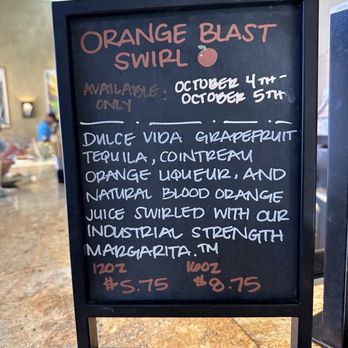 ORANGE BLAST
SWIRL
AVAILABLE: OCTOBER 4TH-
ONLY OCTOBER 5TH
DULCE VIDA GRAPEFRUIT
TEQUILA, COINTREAU
ORANGE LIQUEUR, AND
NATURAL BLOOD ORANGE
JUICE SWIRLED WITH OUR
INDUSTRIAL STRENGTH
MARGARITA.™
12OZ 16OZ
$5.75 $8.75